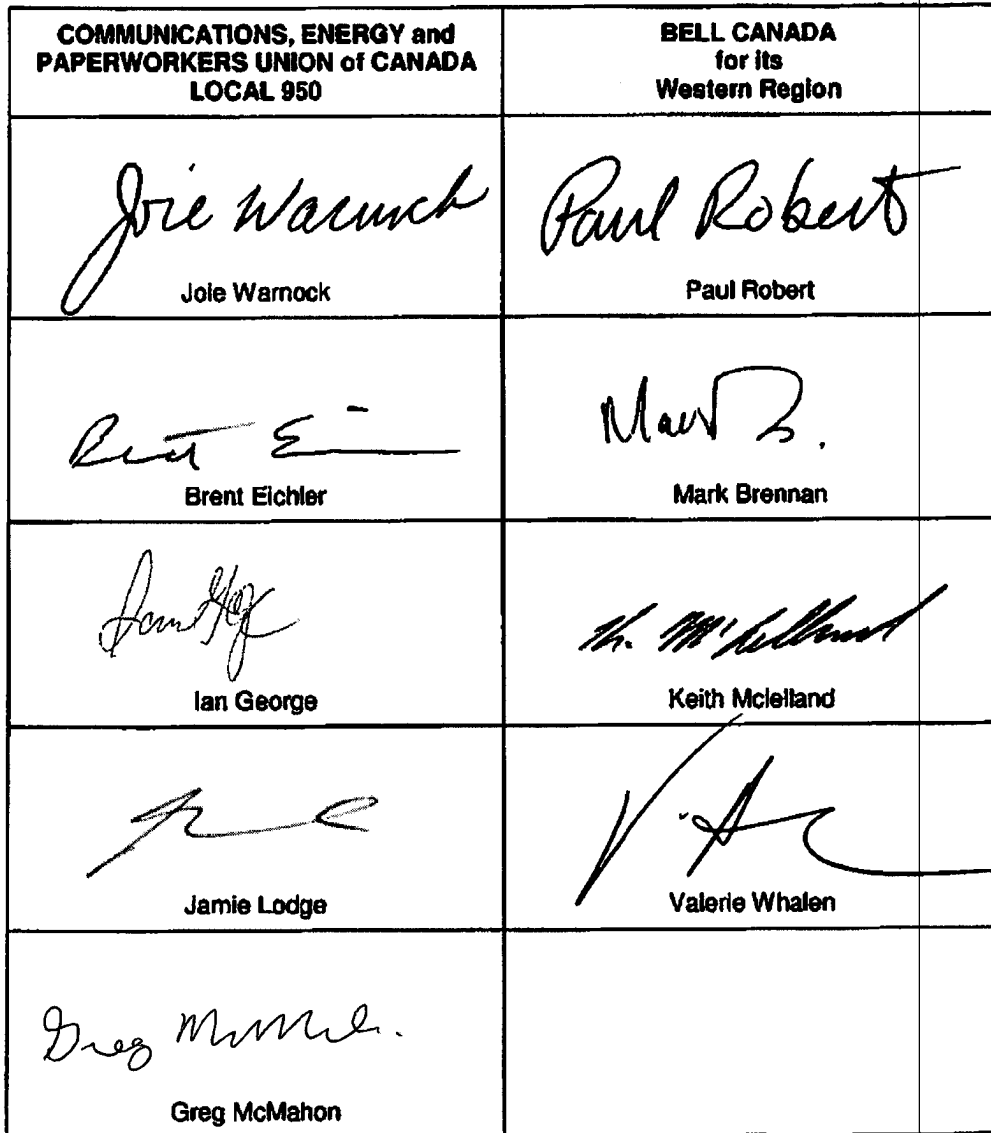 COMMUNICATIONS, ENERGY and
PAPERWORKERS UNION of CANADA
LOCAL 950
BELL CANADA
for its
Western Region
Joie Warnock
Joie Warnock
Paul Robert
Paul Robert
Brent Eichler
Mark Brennan
Ian George
K. McLelland
Keith Mclelland
Jamie Lodge
Valerie Whalen
Greg McMahon